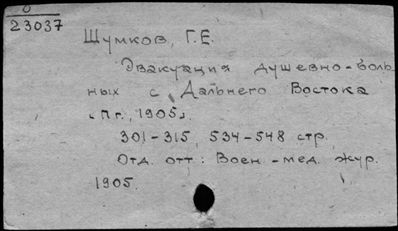 0
23037
Шумков, Г.Е.
Эвакуация душевно-боль
ных с Дальнего Востока
[Пг., 1905].
301-315, 534-548 стр.
Отд. отт: Воен.-мед. жур.
1905.